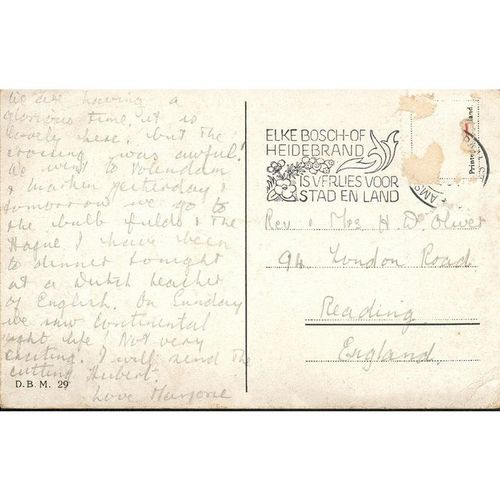 We are having a
glorious time, it is
lovely here, but the
crossing was awful!
We went to Volendam
& Marken yesterday &
tomorrow we go to
the bulb fields & the
Hague. I have been
to dinner tonight
at a Dutch teacher
of English. On Sunday
we saw Continental
night life! Not very
exciting. I will send the
cutting Hubert.
Love Marjorie
D.B.M. 29
ELKE BOSCH- OF
HEIDEBRAND
IS VERLIES VOOR
STAD EN LAND
AMS
Rev. & Mrs H. D. Oliver
94 London Road
Reading
England